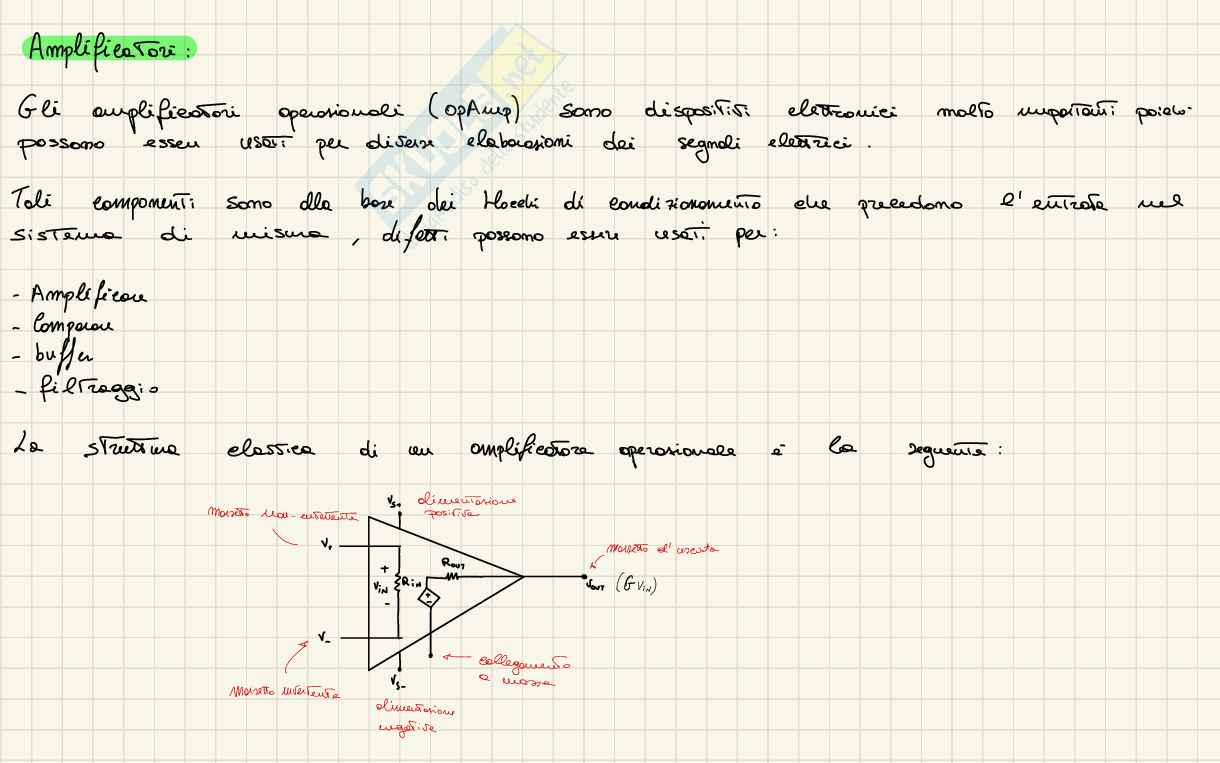 Amplificatori:
Gli amplificatori operazionali (OpAmp) sono dispositivi elettronici molto importanti poichè
possono essere usati per diverse elaborazioni dei segnali elettrici.
Tali componenti sono alla base dei blocchi di condizionamento che precedono l'entrata nel
sistema di misura, difatti possono essere usati per:
- Amplificare
- Comparare
- buffer
- filtraggio
La struttura classica di un amplificatore operazionale è la seguente:
Vs+ alimentazione positiva
morsetto non-invertente
V+
morsetto d'uscita
ROUT
+
VIN
-
RIN
+
-
VOUT (G VIN)
V-
collegamento
a massa
morsetto invertente
Vs-
alimentazione
negativa
SKUOLA.net